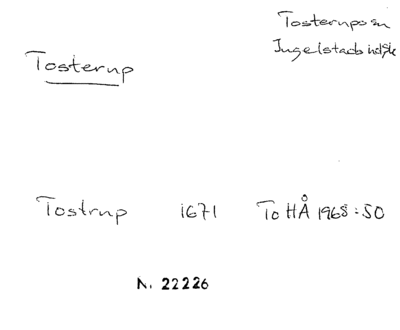 Tosterups sn
Ingelstads hd Sk
Tosterup
Tostrup 1671 To HÅ 1968:50
N. 22226